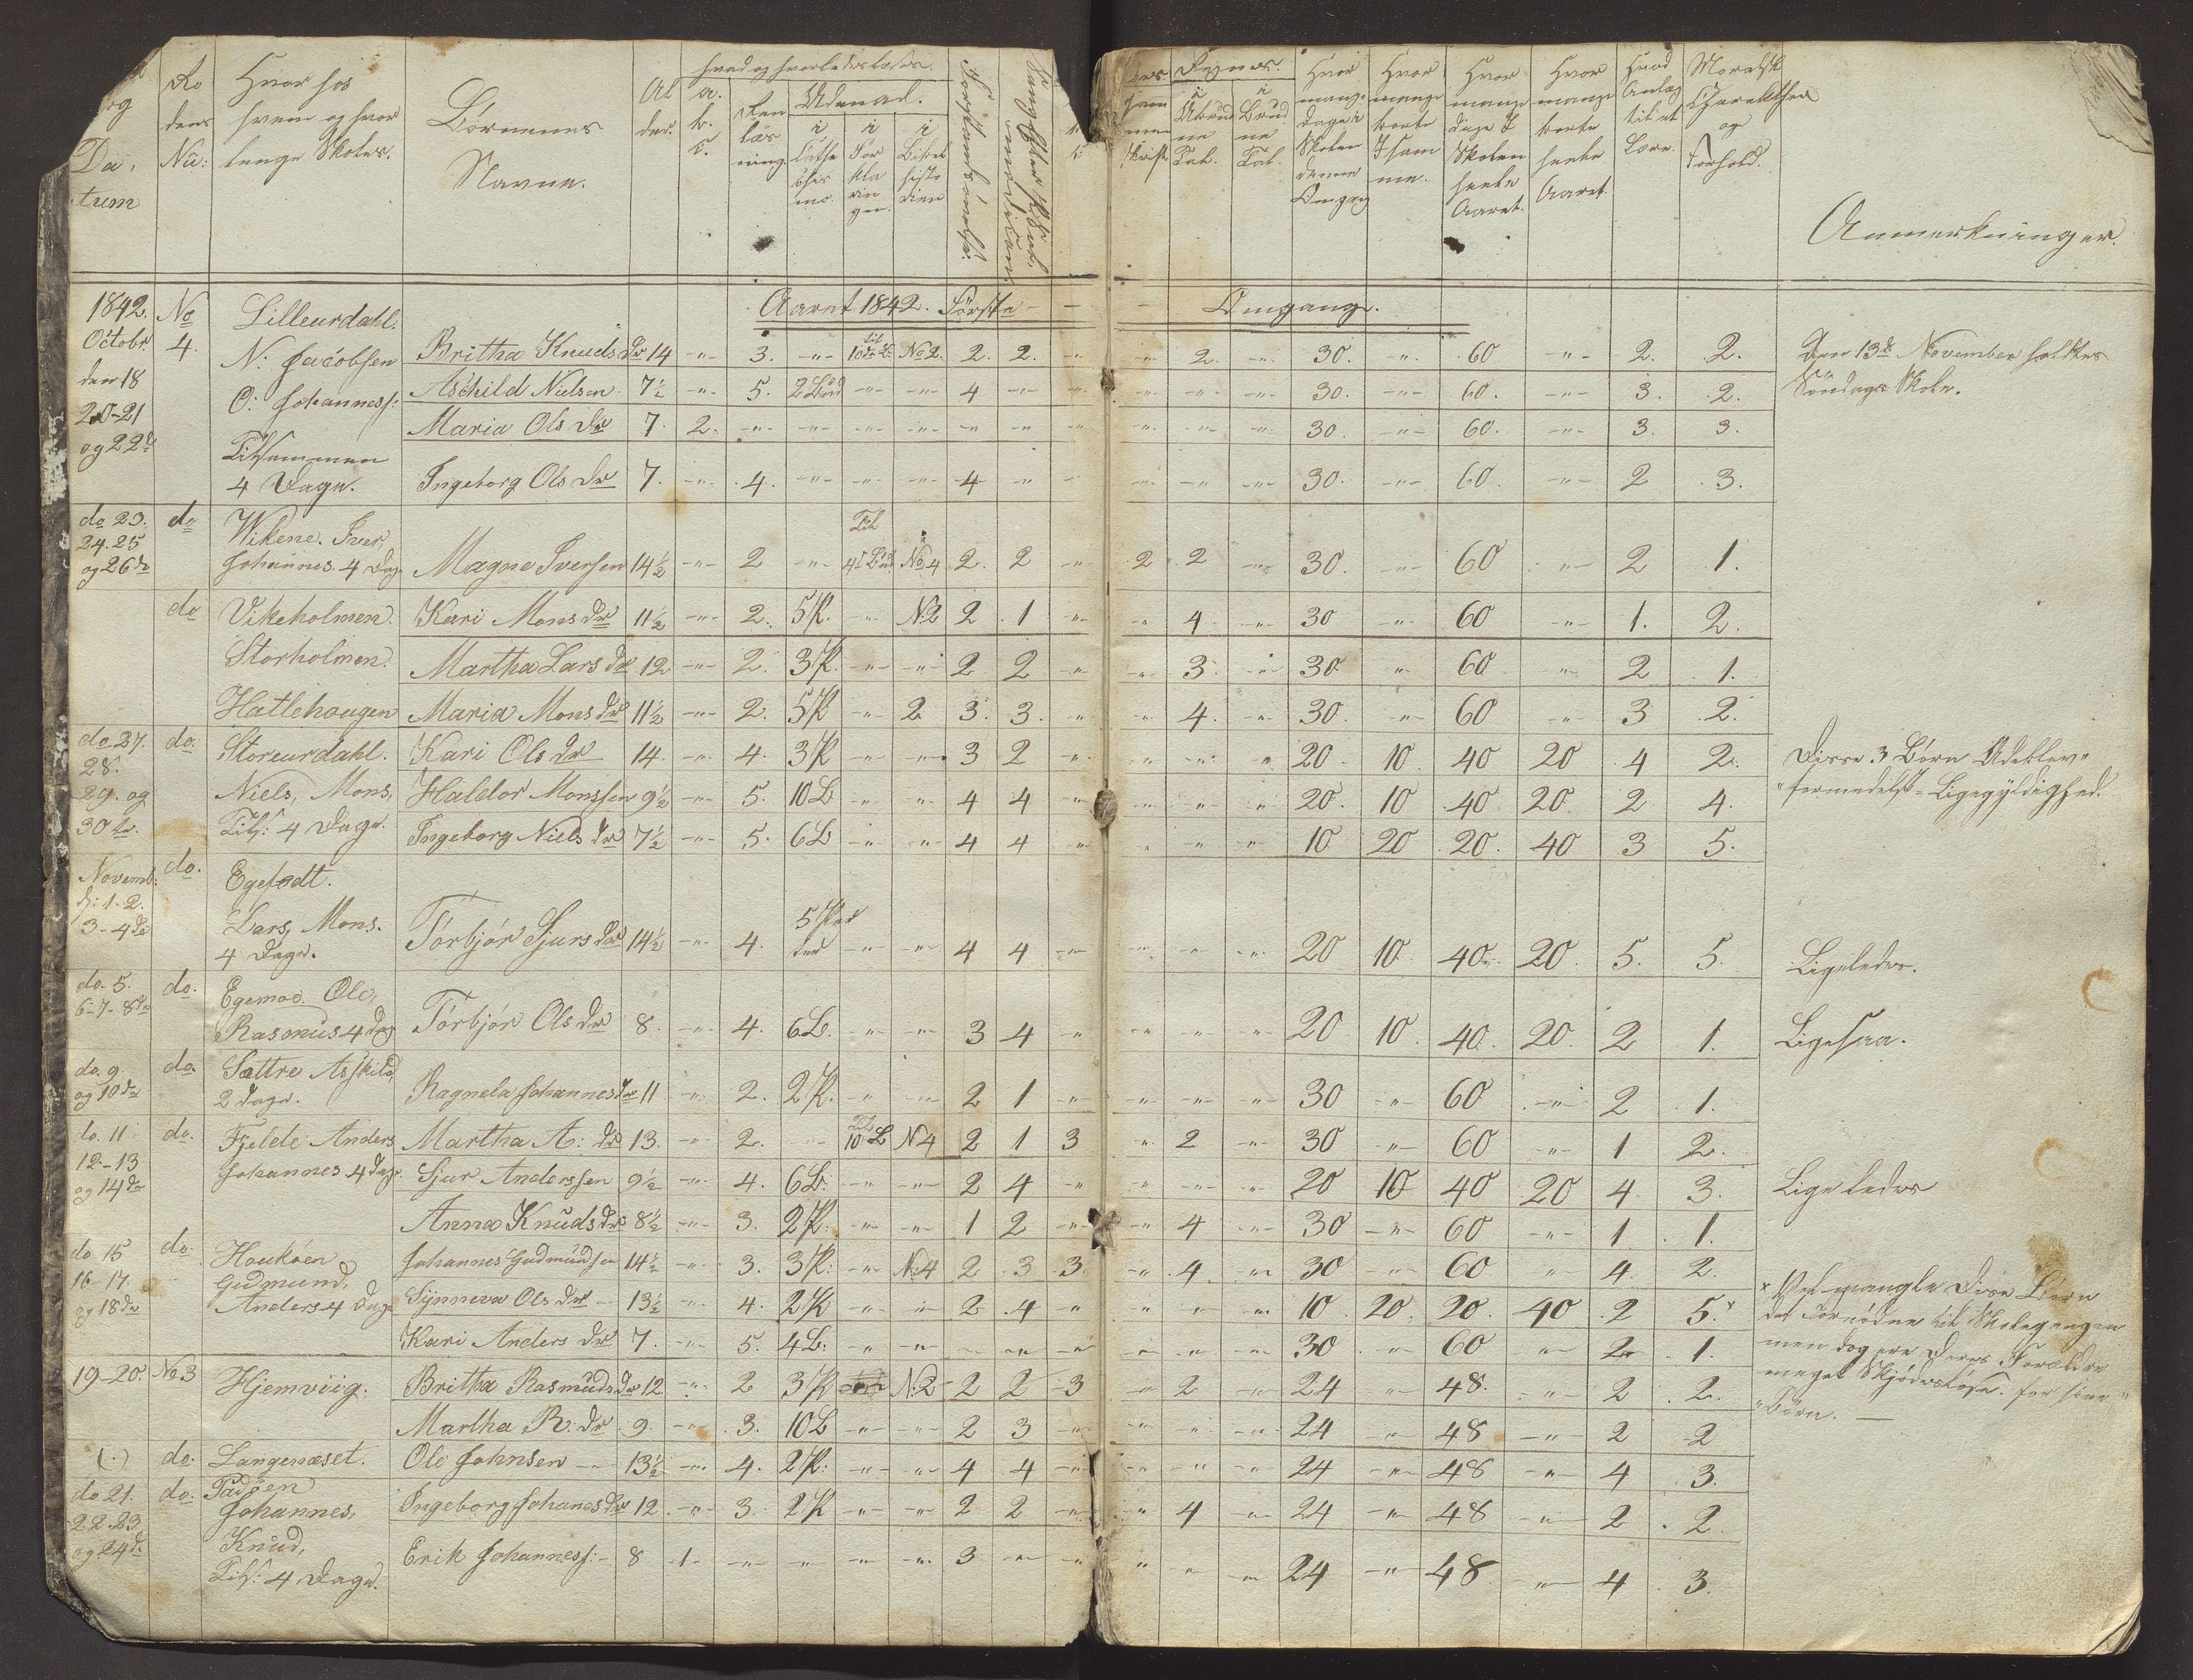 og Da, tum
Ro dens No:
Hvor hos hvem og hvor længe Skoles.
Børnenes Navne.
Al der.
hvad og hvorledes læses.
a. b. c.
Ren læs ning.
Udenad.
i Cathe chis mo.
i For kla rin gen.
i Bibel histo rien
Forstandsøvelse.
Regnes.
i Ubrud ne Tal.
i Brud ne Tal.
Hvor mange dage i Skolen denne Omgang
Hvor mange borte I sam me.
Hvor mange dage I Skolen heele Aaret.
Hvor mange borte heele Aaret.
Hvad Anlæg til at Lære.
Moralsk Charakther og Forhold.
Anmerkninger.
Aaret 1842. Første - - - Omgang.
1842. No Lilleurdahl.
Octobr. 4. N: Jacobsen Britha Knuds Dr 14 -"- 3. -"- til 10de L: No 2. 2. 2. -"- -"- 2. -"- 30. -"- 60 -"- 2. 2. Den 13de November holdtes
den 18 O: Johanness: Aschild Nielsen 7½ -"- 5. 2 Bud -"- -"- 4 -"- -"- -"- -"- -"- 30. -"- 60. -"- 3. 2. Søndags Skole.
20-21 Maria Ols Dr 7. 2. -"- -"- -"- -"- -"- -"- -"- -"- -"- -"- 30. -"- 60. -"- 3. 3.
og 22de Tilsammen
4 Dage. Ingeborg Ols Dr 7. -"- 4. -"- -"- -"- 4 -"- -"- -"- -"- -"- 30. -"- 60. -"- 2 3.
do 23. do Wikene. Iver
24. 25 Til
og 26de Johannes. 4 Dage Magne Iversen 14½ -"- 2 -"- 4de Bud No 4 2. 2 -"- 2 2 -"- 30. -"- 60 -"- 2 1.
do Vikeholmen. Kari Mons Dr 11½ -"- 2. 5 P. -"- N:2 2 1 -"- -"- 4. -"- 30 -"- 60 -"- 1. 2.
Storholmen. Martha Lars Dr 12 -"- 2. 3 P. -"- -"- 2 2 -"- -"- 3. -"- 30. -"- 60 -"- 2 1.
Hatlehougen Maria Mons Dr 11½ -"- 2. 5 P -"- 2 3. 3. -"- -"- 4. -"- 30. -"- 60 -"- 3 2.
do 27. do. Storeurdahl. Kari Ols Dr 14. -"- 4. 3 P -"- -"- 3 2 -"- -"- -"- -"- 20. 10. 40 20 4 2. Disse 3 Børn Udeblev
28. 29. og Niels, Mons, Haldor Monssen 9½ -"- 5. 10 L -"- -"- 4 4 -"- -"- -"- -"- 20. 10 40 20 2 4. formedelst Ligegyldighed.
30te. Tils: 4 Dage. Ingeborg Niels Dr 7½ -"- 5. 6 L -"- -"- 4 4 -"- -"- -"- -"- 10 20 20. 40 3 5.
Novemb: do. Egetodt.
h: 1. 2. Lars, Mons. 5 Par
3-4de 4 Dage. Torbjør Sjurs Dr 14½ -"- 4. ter -"- -"- 4 4 -"- -"- -"- -"- 20 10. 40. 20. 5. 5. Ligeledes.
do. 5. do. Egemoe Ole,
6-7-8de Rasmus 4 Dag Torbjør Ols Dr 8. -"- 4. 6 L. -"- -"- 3 4 -"- -"- -"- -"- 20 10. 40. 20. 2 1. Ligesaa.
do. 9. do. Sættre Asskild,
og 10de 2 Dage. Ragnela Johannes Dr 11 -"- 2. 2 P. -"- -"- 2 1 -"- -"- -"- -"- 30 -"- 60 -"- 2 1.
do. 11 do. Fjelde Anders, Martha A: Dr 13. -"- 2. -"- Til 10 L N:4 2 1 3 -"- 2 -"- 30 -"- 60 -"- 1 2.
12-13 og 14de Johannes 4 Dage Sjur Anderssen 9½ -"- 4. 6 L. -"- -"- 2 4 -"- -"- -"- -"- 20 10 40 20 4 3. Ligeledes
Anna Knuds Dr 8½ -"- 3. 2 P. -"- -"- 1 2 -"- -"- 4 -"- 30 -"- 60 -"- 1. 1.
do 15 do. Houkøen Johannes Gudmundsen 14½ -"- 3. 3 P: -"- N:4 2 3 3 -"- 4. -"- 30 -"- 60 -"- 4. 2.
16-17. og 18de Gudmund, Anders 4 Dage Synneva Ols Dr 13½ -"- 4. 2 P -"- -"- 2 4 -"- -"- -"- -"- 10. 20. 20. 40 2 5.x
x Vel mangle Disse Børn
det Fornødne til Skolegangen
Kari Anders Dr 7. -"- 5. 4 L: -"- -"- -"- -"- -"- -"- -"- -"- 30 -"- 60 -"- 2 1. men dog ere Deres Forældre
19-20. No 3 Hjemviig. Britha Rasmuds Dr 12. -"- 2 3 P N:2 2 2 3 -"- 2 -"- 24 -"- 48. -"- 2 2. meget Skjødesløse. for sine
Børn. -
Martha R: Dr 9. -"- 3. 10 L -"- -"- 2 3 -"- -"- -"- -"- 24 -"- 48 -"- 2 2
(.) do. Langenæset. Ole Johnsen - 13½ -"- 4. 2 P: -"- -"- 4 4 -"- -"- -"- -"- 24 -"- 48 -"- 4 3.
do 21. do. Padøen
22. 23 Johannes, Ingeborg Johanes Dr 12. -"- 3. 2 P -"- -"- 2 2 -"- -"- 4 -"- 24 -"- 48 -"- 2. 2.
og 24de Knud, Erik Johanness: - 8 -1- -"- -"- -"- -"- 3 -"- -"- -"- -"- -"- 24 -"- 48 -"- 4 3.
Tils: 4 Dage.